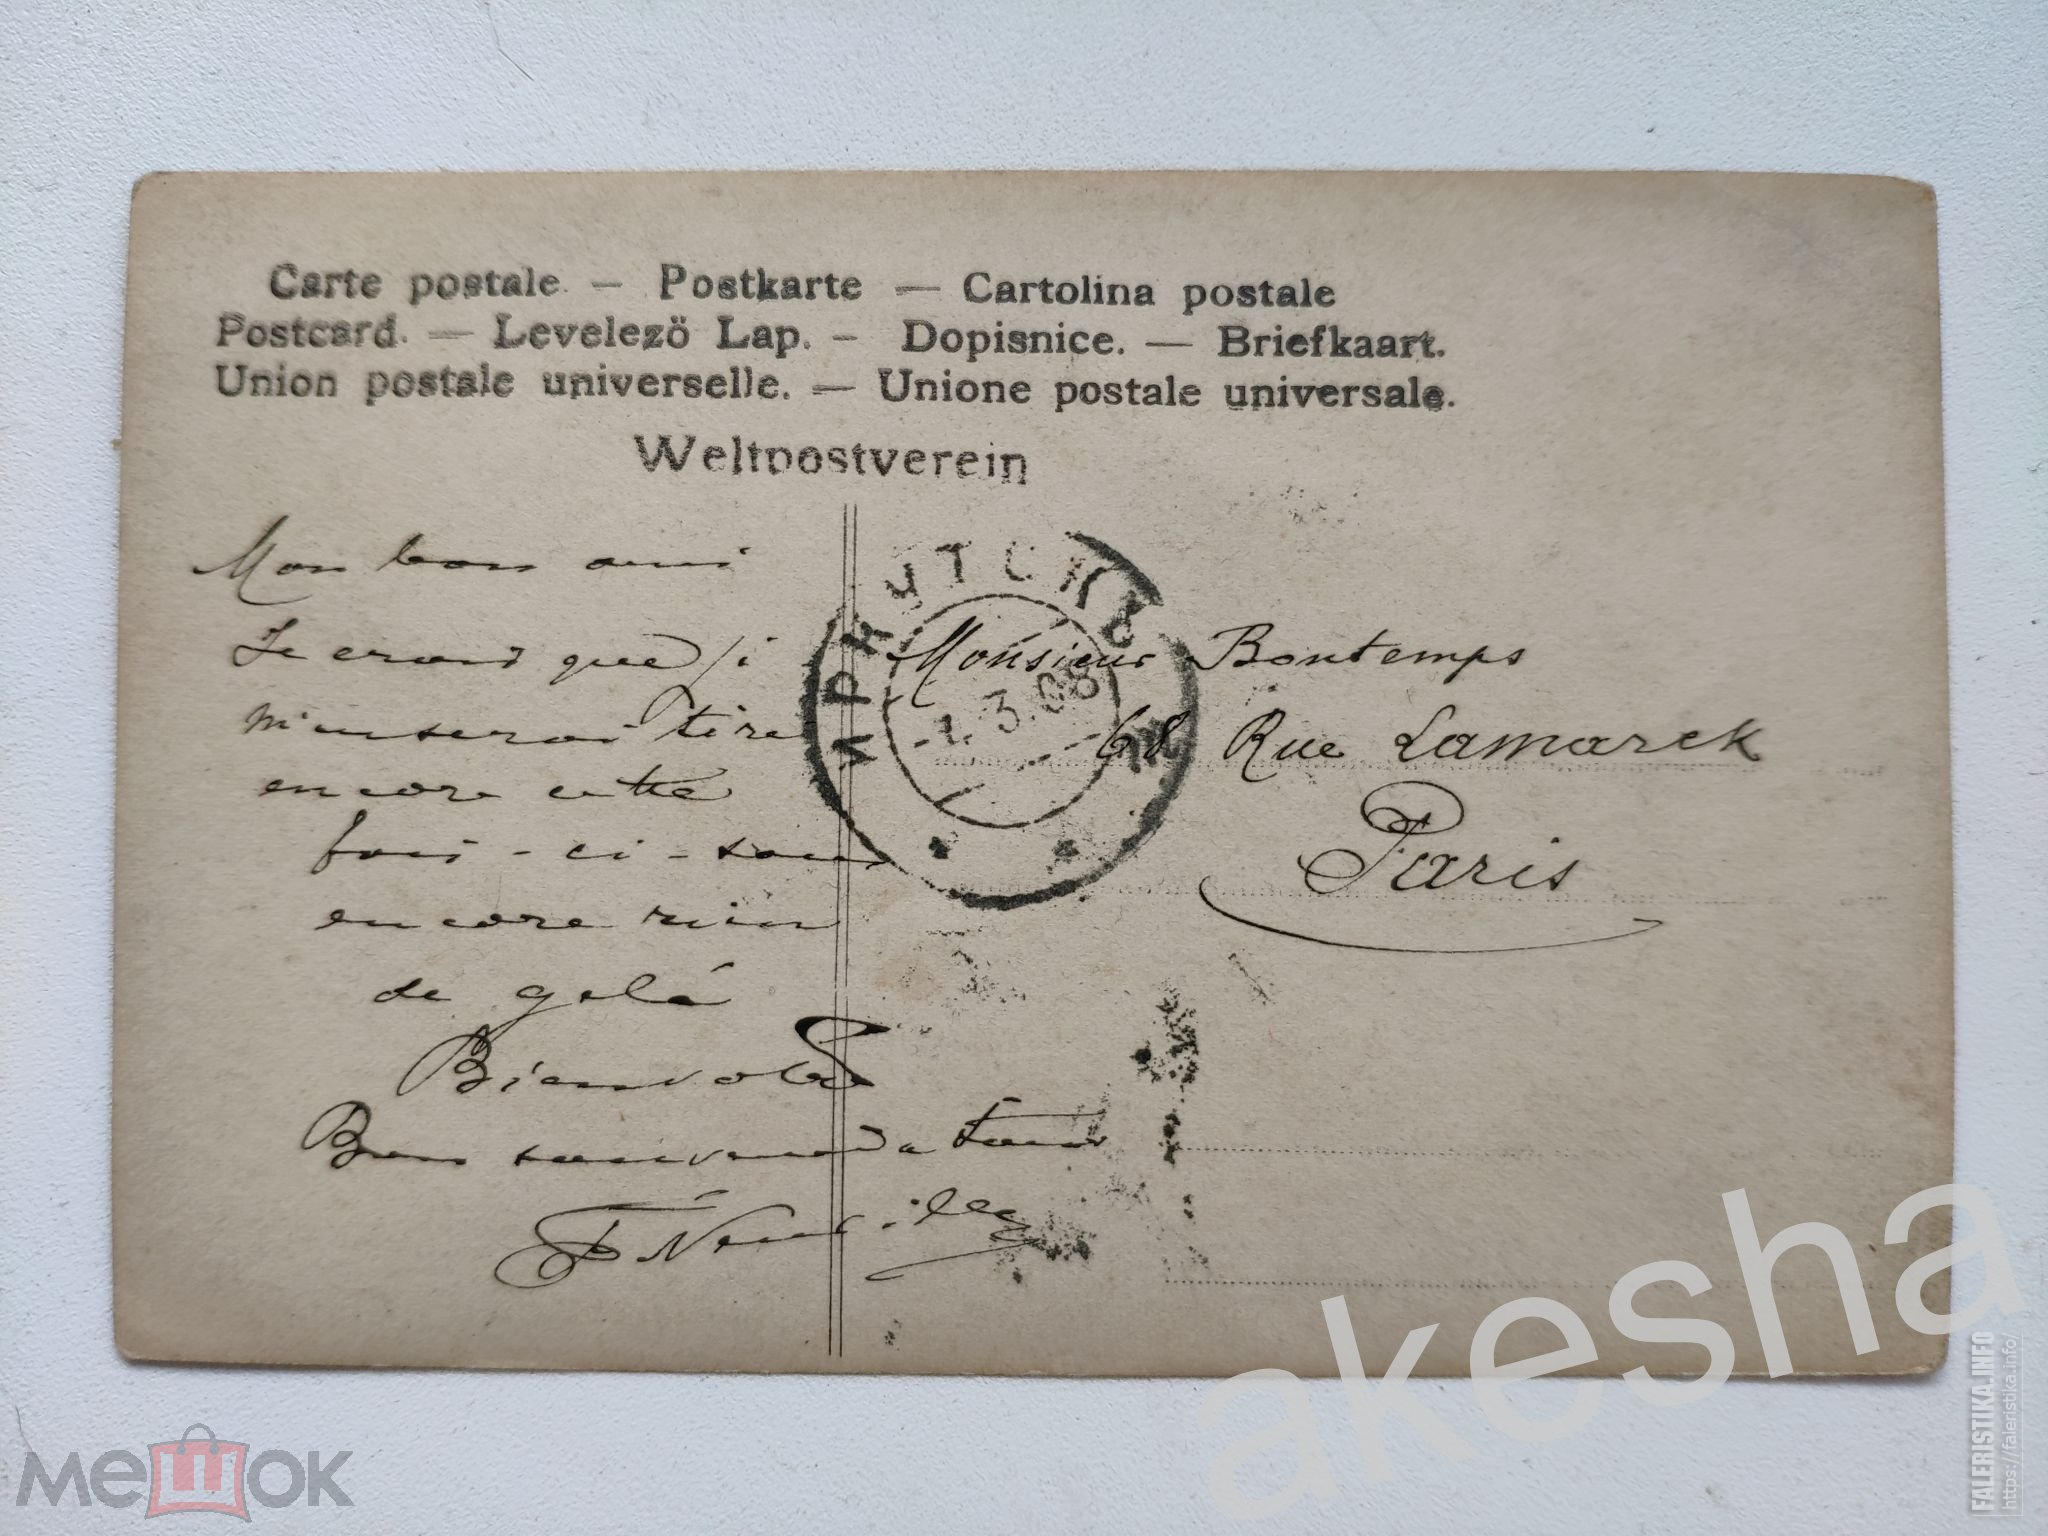 Carte postale – Postkarte — Cartolina postale
Postcard. — Levelezö Lap. – Dopisnice. — Briefkaart.
Union postale universelle. — Unione postale universale.
Weltpostverein
Mon bon ami
Je crois que j
tire
encore cette
fois-ci-sans
encore rien
de gelé
Bien
Bon a tous
ИРКУТСКЪ
1.3.08
Monsieur Bontemps
68 Rue Lamarck
Paris
akesha
мешок
FALERISTIKA.INFO
https://faleristika.info/